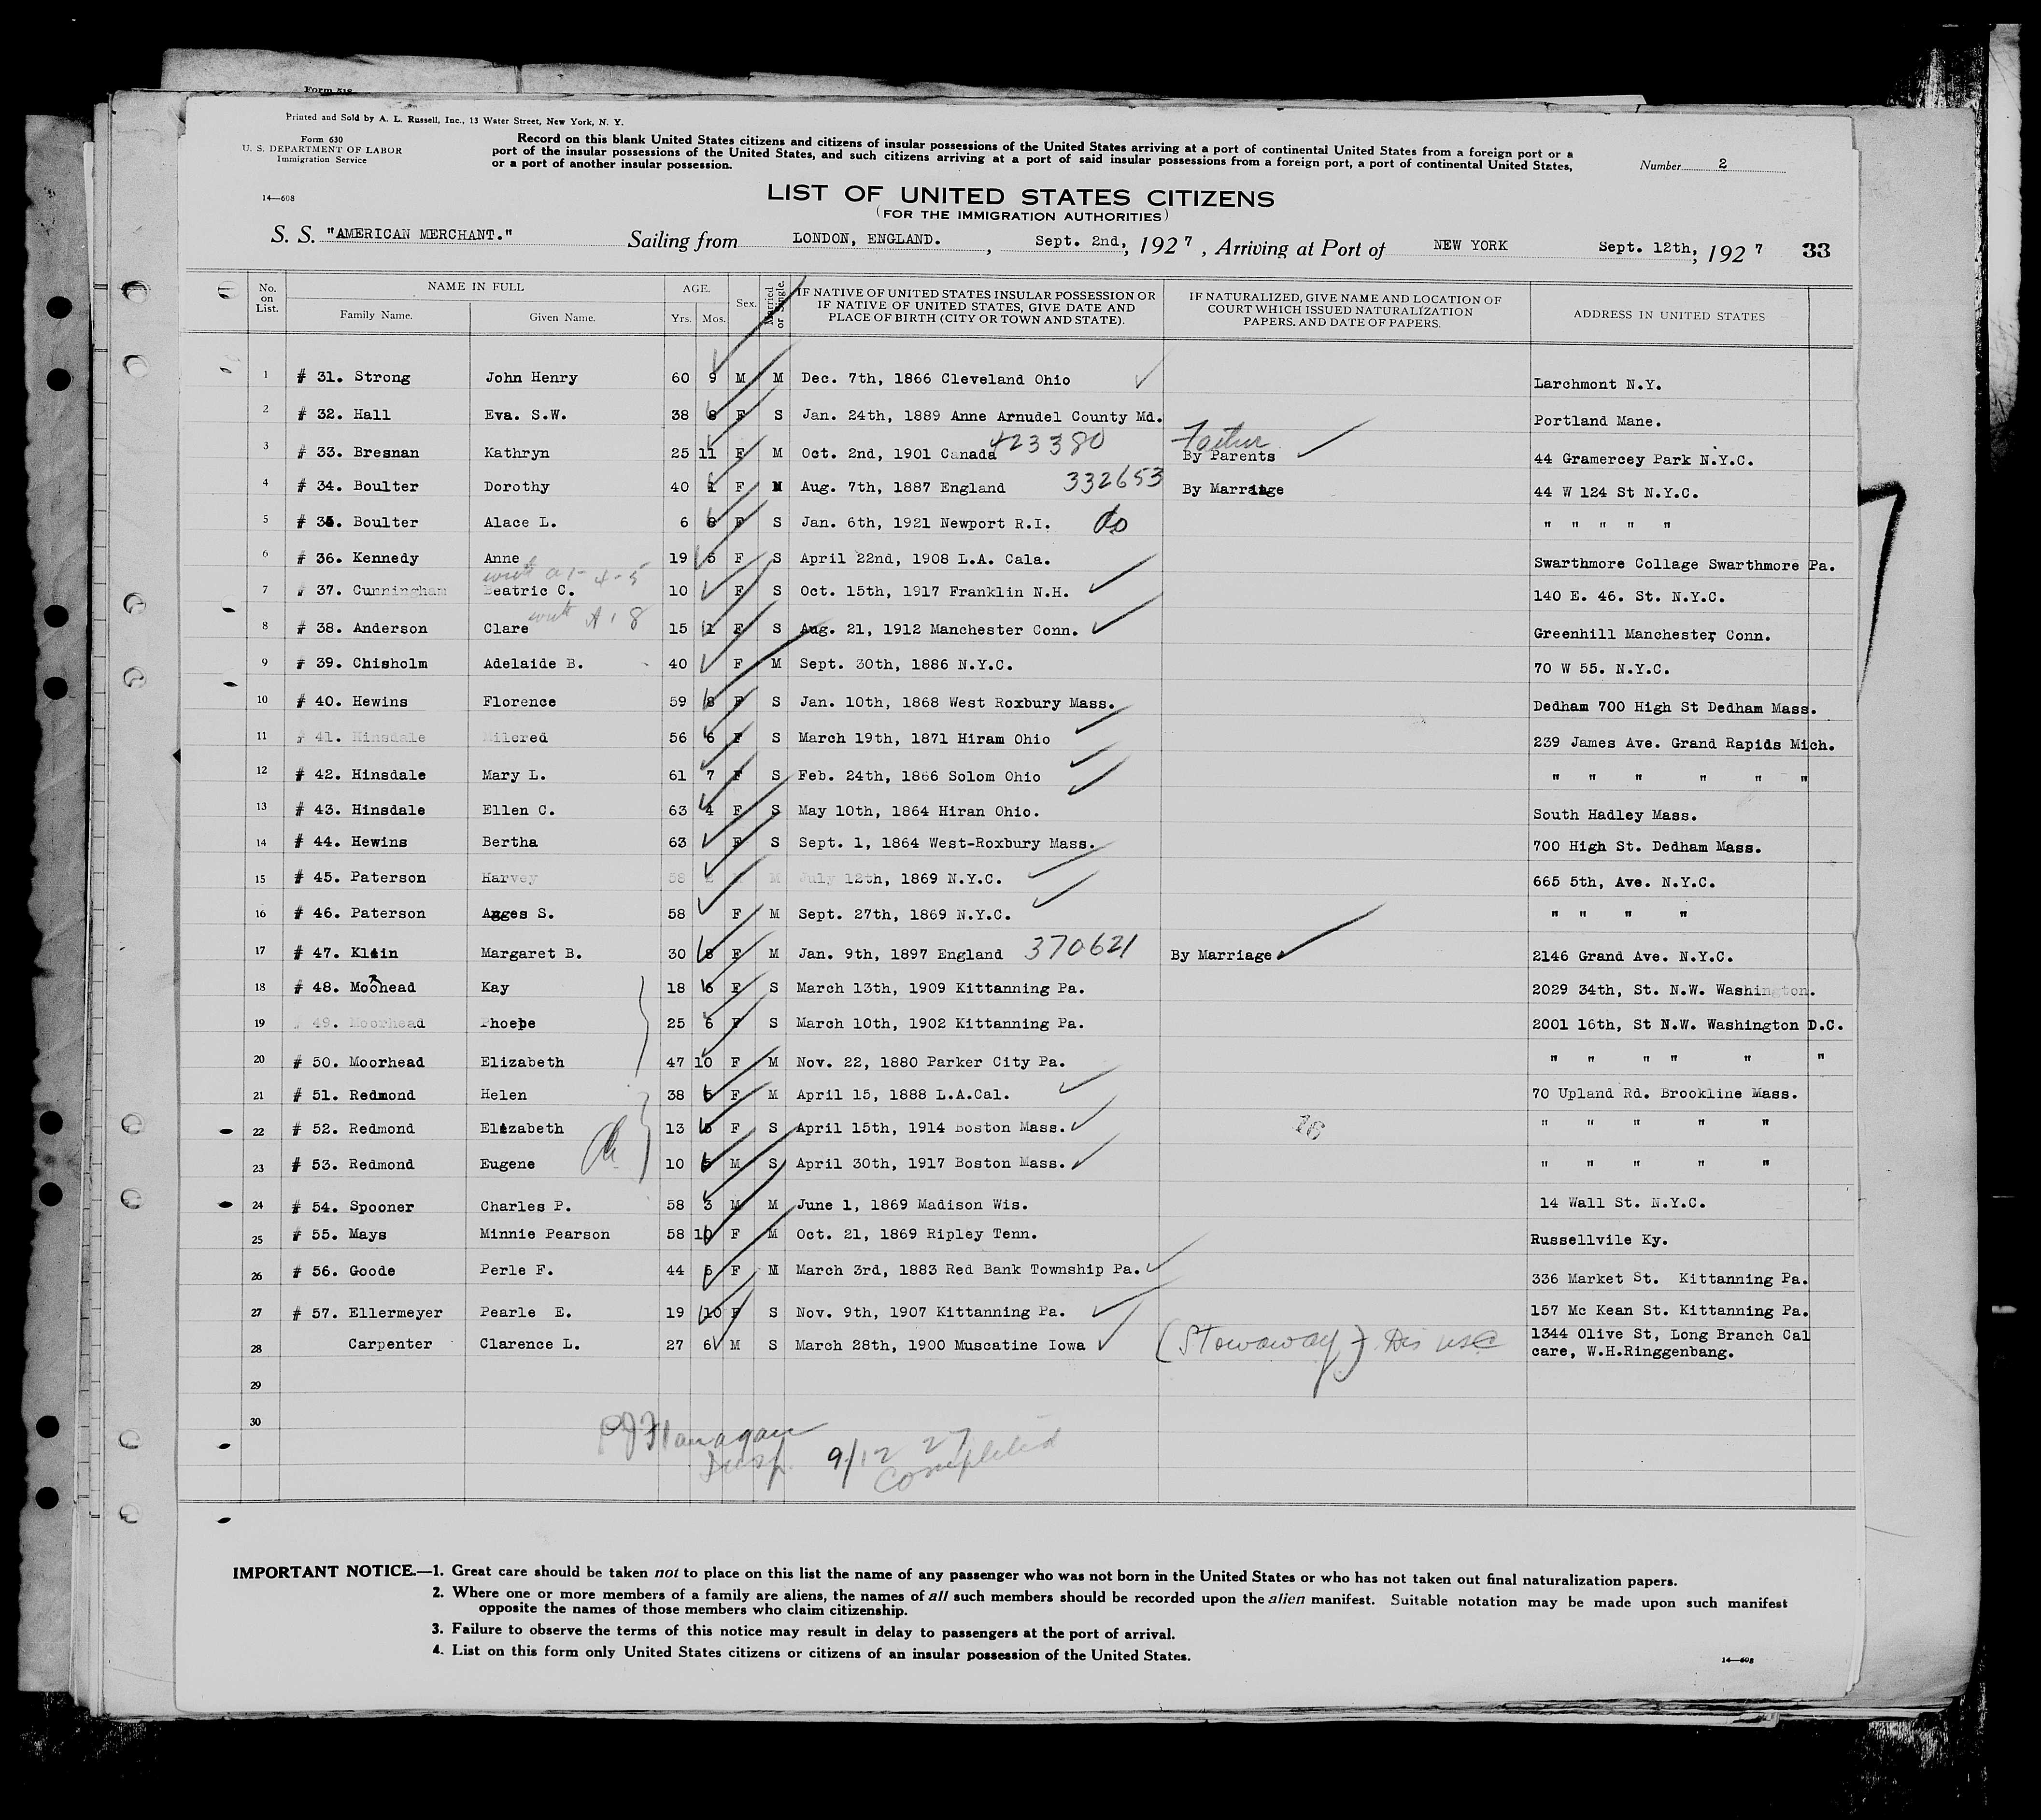 Form 518
Printed and Sold by A. L. Russell, Inc., 13 Water Street, New York, N. Y.
Form 630
U. S. DEPARTMENT OF LABOR
Immigration Service
14—608
Record on this blank United States citizens and citizens of insular possessions of the United States arriving at a port of continental United States from a foreign port or a
port of the insular possessions of the United States, and such citizens arriving at a port of said insular possessions from a foreign port, a port of continental United States,
or a port of another insular possession.
Number 2
LIST OF UNITED STATES CITIZENS
(FOR THE IMMIGRATION AUTHORITIES)
S. S. "AMERICAN MERCHANT." Sailing from LONDON, ENGLAND. , Sept. 2nd, 1927, Arriving at Port of NEW YORK Sept. 12th, 1927 33
No. on List. NAME IN FULL Family Name. Given Name. AGE. Yrs. Mos. Sex. Married or Single. IF NATIVE OF UNITED STATES INSULAR POSSESSION OR IF NATIVE OF UNITED STATES, GIVE DATE AND PLACE OF BIRTH (CITY OR TOWN AND STATE). IF NATURALIZED, GIVE NAME AND LOCATION OF COURT WHICH ISSUED NATURALIZATION PAPERS, AND DATE OF PAPERS. ADDRESS IN UNITED STATES
1 # 31. Strong John Henry 60 9 M M Dec. 7th, 1866 Cleveland Ohio Larchmont N.Y.
2 # 32. Hall Eva. S.W. 38 8 F S Jan. 24th, 1889 Anne Arnudel County Md. Portland Mane.
3 # 33. Bresnan Kathryn 25 11 F M Oct. 2nd, 1901 Canada 423380 Father By Parents 44 Gramercey Park N.Y.C.
4 # 34. Boulter Dorothy 40 1 F M Aug. 7th, 1887 England 332653 By Marriage 44 W 124 St N.Y.C.
5 # 35. Boulter Alace L. 6 8 F S Jan. 6th, 1921 Newport R.I. do " " " " "
6 # 36. Kennedy Anne 19 5 F S April 22nd, 1908 L.A. Cala. Swarthmore Collage Swarthmore Pa.
7 # 37. Cunningham Beatric C. 10 F S Oct. 15th, 1917 Franklin N.H. 140 E. 46. St. N.Y.C.
8 # 38. Anderson Clare 15 1 F S Aug. 21, 1912 Manchester Conn. Greenhill Manchester, Conn.
9 # 39. Chisholm Adelaide B. 40 F M Sept. 30th, 1886 N.Y.C. 70 W 55. N.Y.C.
10 # 40. Hewins Florence 59 8 F S Jan. 10th, 1868 West Roxbury Mass. Dedham 700 High St Dedham Mass.
11 # 41. Hinsdale Milcred 56 6 F S March 19th, 1871 Hiram Ohio 239 James Ave. Grand Rapids Mich.
12 # 42. Hinsdale Mary L. 61 7 F S Feb. 24th, 1866 Solom Ohio " " " " " "
13 # 43. Hinsdale Ellen C. 63 4 F S May 10th, 1864 Hiran Ohio. South Hadley Mass.
14 # 44. Hewins Bertha 63 F S Sept. 1, 1864 West-Roxbury Mass. 700 High St. Dedham Mass.
15 # 45. Paterson Harvey 58 2 M July 12th, 1869 N.Y.C. 665 5th, Ave. N.Y.C.
16 # 46. Paterson Agges S. 58 F M Sept. 27th, 1869 N.Y.C. " " " "
17 # 47. Klein Margaret B. 30 8 F M Jan. 9th, 1897 England 370621 By Marriage 2146 Grand Ave. N.Y.C.
18 # 48. Moorhead Kay 18 6 F S March 13th, 1909 Kittanning Pa. 2029 34th, St. N.W. Washington.
19 # 49. Moorhead Phoebe 25 6 F S March 10th, 1902 Kittanning Pa. 2001 16th, St N.W. Washington D.C.
20 # 50. Moorhead Elizabeth 47 10 F M Nov. 22, 1880 Parker City Pa. " " " " " "
21 # 51. Redmond Helen 38 5 F M April 15, 1888 L.A.Cal. 70 Upland Rd. Brookline Mass.
22 # 52. Redmond Elizabeth 13 5 F S April 15th, 1914 Boston Mass. " " " " "
23 # 53. Redmond Eugene 10 5 M S April 30th, 1917 Boston Mass. " " " " "
24 # 54. Spooner Charles P. 58 3 M M June 1, 1869 Madison Wis. 14 Wall St. N.Y.C.
25 # 55. Mays Minnie Pearson 58 10 F M Oct. 21, 1869 Ripley Tenn. Russellvile Ky.
26 # 56. Goode Perle F. 44 6 F M March 3rd, 1883 Red Bank Township Pa. 336 Market St. Kittanning Pa.
27 # 57. Ellermeyer Pearle E. 19 10 F S Nov. 9th, 1907 Kittanning Pa. 157 Mc Kean St. Kittanning Pa.
28 Carpenter Clarence L. 27 6 M S March 28th, 1900 Muscatine Iowa (Stowaway) Dis USC 1344 Olive St, Long Branch Cal
care, W.H.Ringgenbang.
29
30
P J Flanagan
Insp. 9/12 27
Completed
IMPORTANT NOTICE.—1. Great care should be taken not to place on this list the name of any passenger who was not born in the United States or who has not taken out final naturalization papers.
2. Where one or more members of a family are aliens, the names of all such members should be recorded upon the alien manifest. Suitable notation may be made upon such manifest
opposite the names of those members who claim citizenship.
3. Failure to observe the terms of this notice may result in delay to passengers at the port of arrival.
4. List on this form only United States citizens or citizens of an insular possession of the United States.
14—608